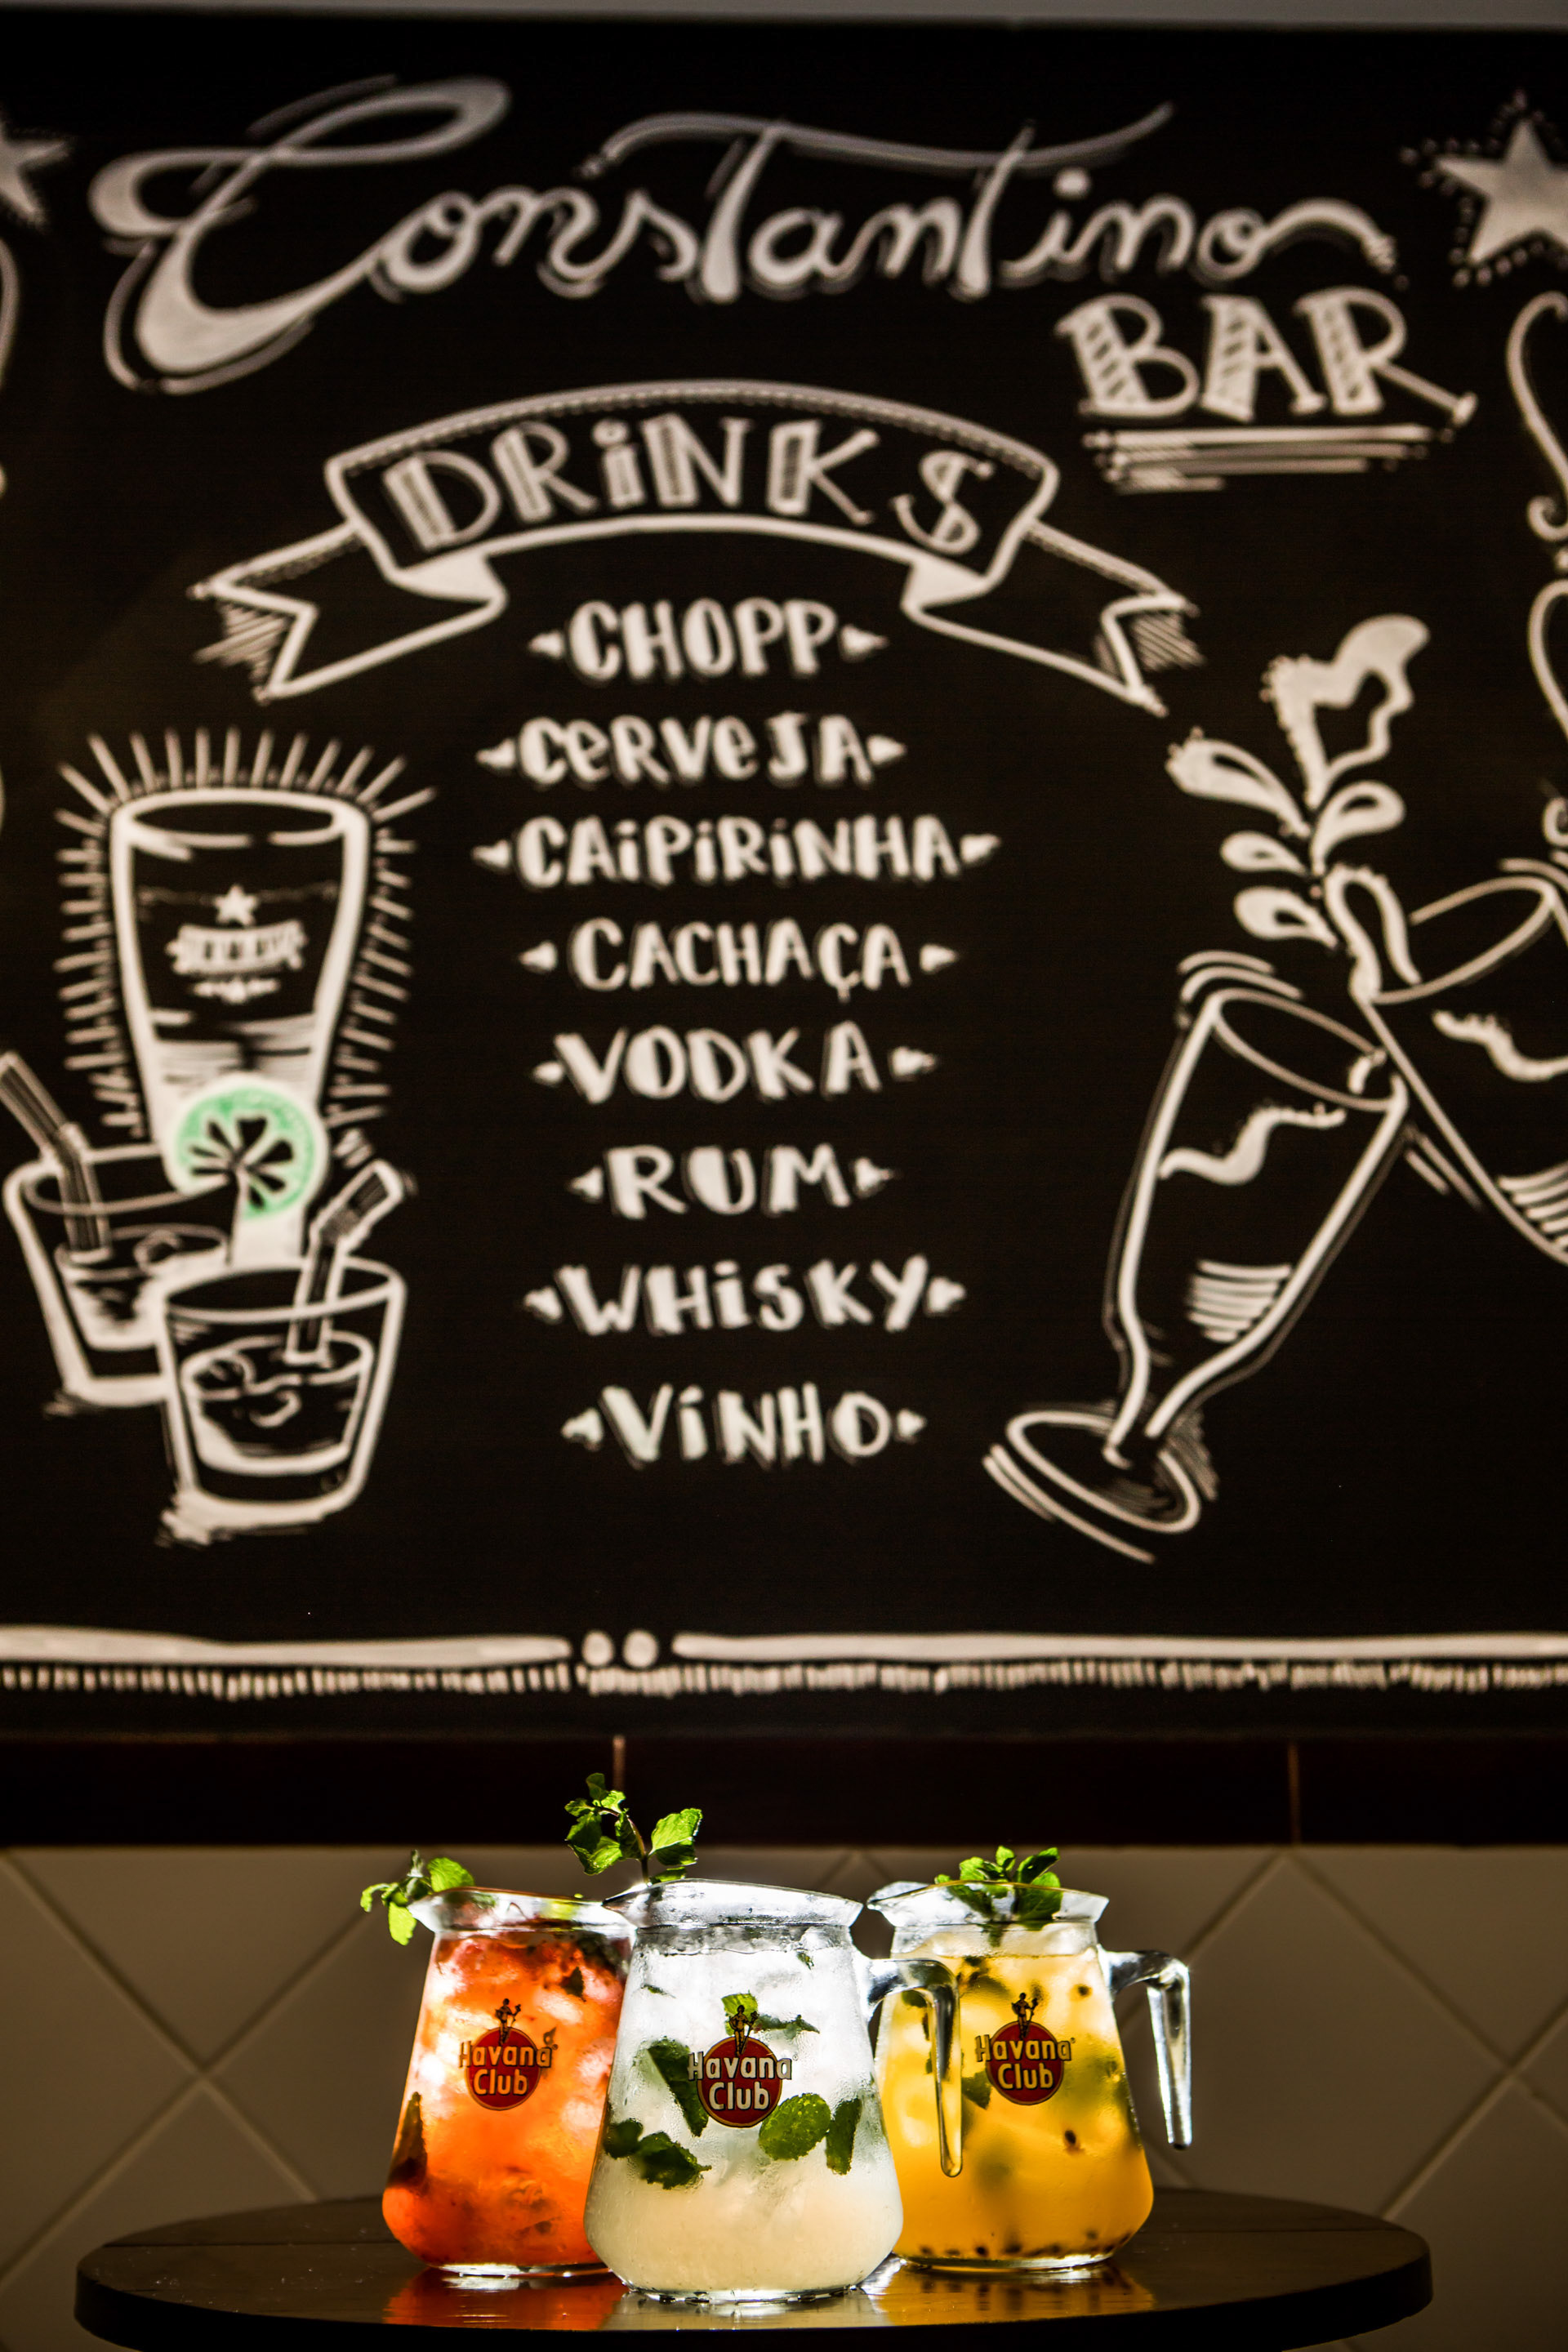 Constantino
BAR
DRiNKS
CHOPP
CeRVeJA
CAiPiRiNHA
CACHAÇA
VODKA
RUM
WHiSKY
ViNHO
Havana
Club
Havana
Club
Havana
Club